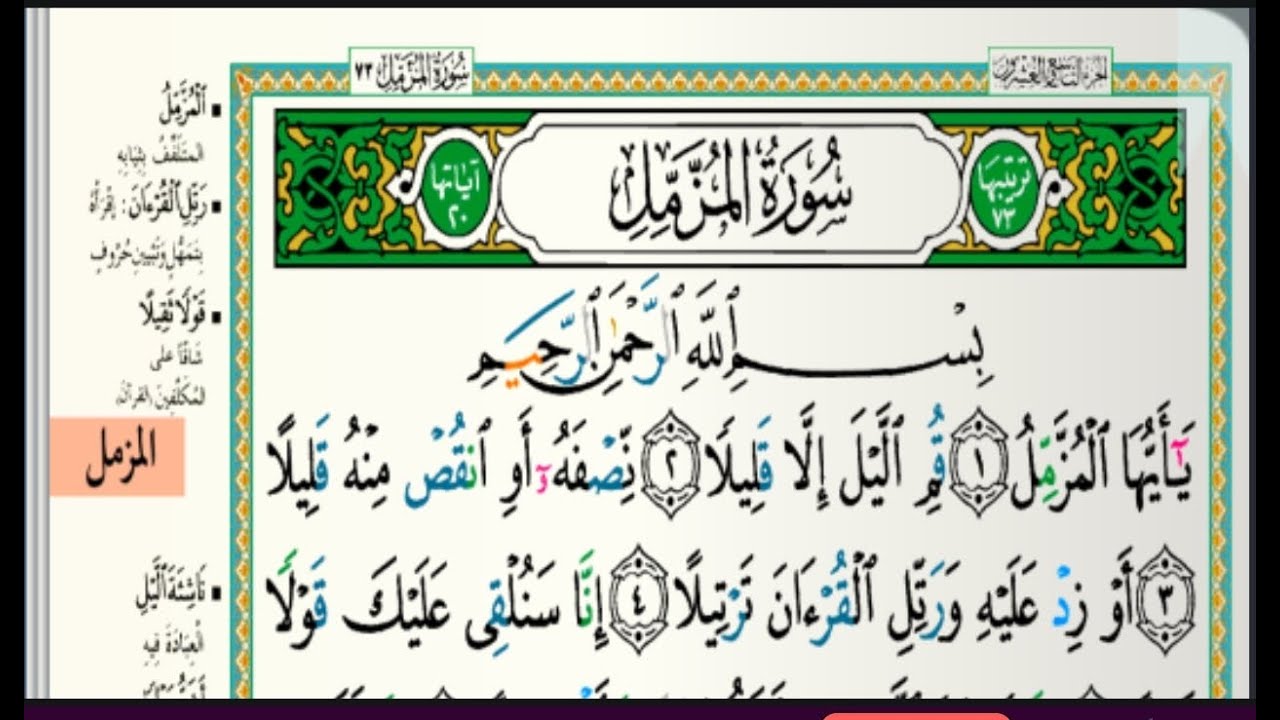 الجزء التاسع والعشرون
سُورَةُ المُزَّمِّل ٧٣
ترتيبها ٧٣
سُورَةُ المُزَّمِّلِ
آياتها ٢٠
بِسْمِ ٱللَّهِ ٱلرَّحْمَٰنِ ٱلرَّحِيمِ
يَٰٓأَيُّهَا ٱلْمُزَّمِّلُ ١ قُمِ ٱلَّيْلَ إِلَّا قَلِيلًا ٢ نِّصْفَهُۥٓ أَوِ ٱنقُصْ مِنْهُ قَلِيلًا
٣ أَوْ زِدْ عَلَيْهِ وَرَتِّلِ ٱلْقُرْءَانَ تَرْتِيلًا ٤ إِنَّا سَنُلْقِى عَلَيْكَ قَوْلًا
▪ ٱلْمُزَّمِّلُ
المتَلَفِّفُ بِثِيَابِهِ
▪ رَتِّلِ ٱلْقُرْءَانَ: اِقْرَأْهُ
بِتَمَهُّلٍ وَتَبْيِينِ حُرُوفٍ
▪ قَوْلًا ثَقِيلًا
شَاقًّا على
المُكَلَّفِينَ (القرآن)
المزمل
▪ نَاشِئَةَ ٱلَّيْلِ
الْعِبَادَةَ فِيهِ